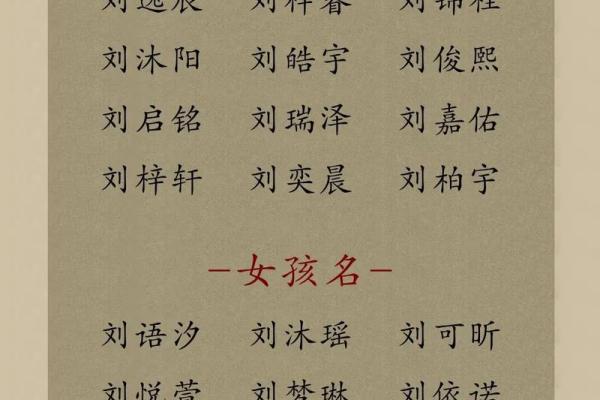 刘逸辰 刘梓睿 刘锦程
刘沐阳 刘皓宇 刘俊熙
刘启铭 刘瑞泽 刘嘉佑
刘梓轩 刘奕晨 刘柏宇
–女孩名–
刘语汐 刘沐瑶 刘可昕
刘悦萱 刘梦琳 刘依诺